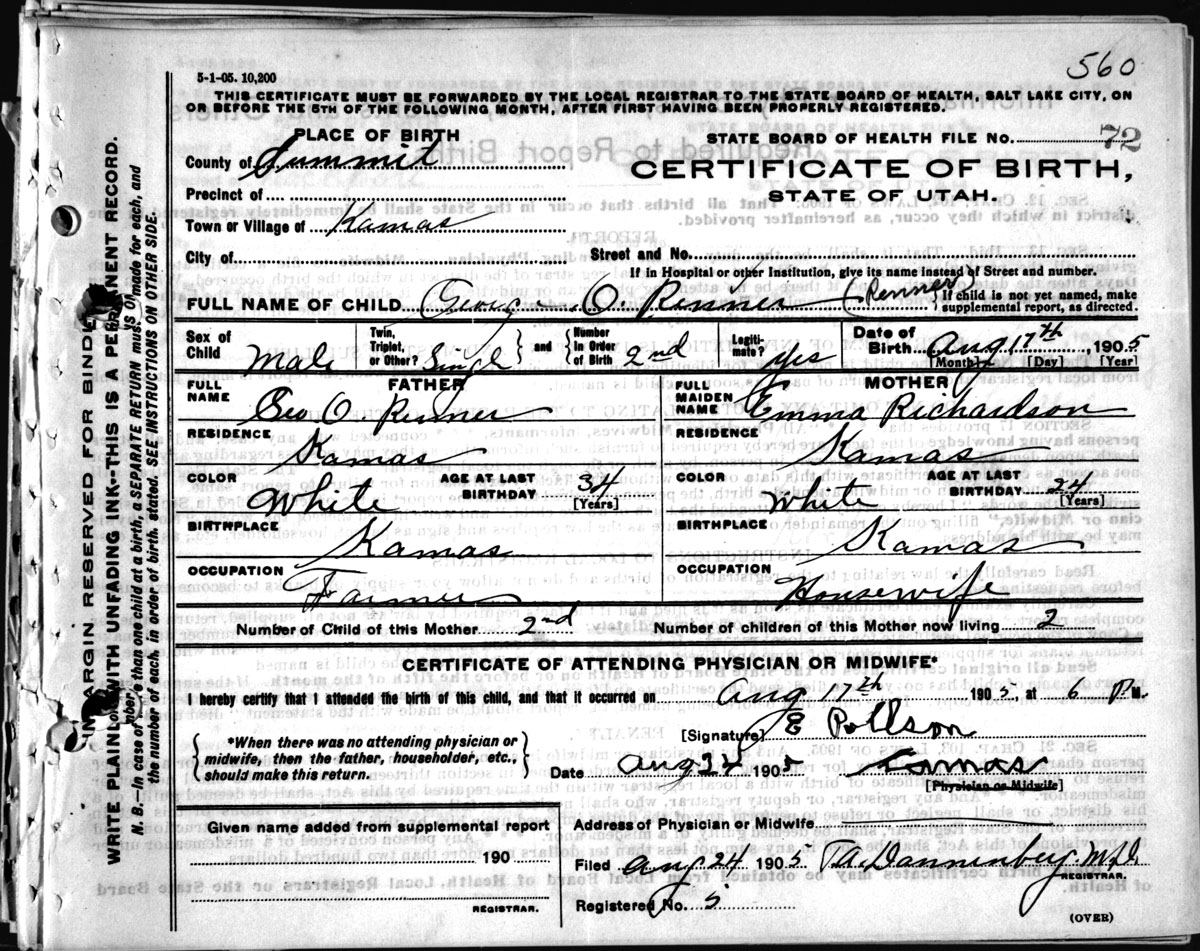 560
5-1-05. 10,200
THIS CERTIFICATE MUST BE FORWARDED BY THE LOCAL REGISTRAR TO THE STATE BOARD OF HEALTH, SALT LAKE CITY, ON
OR BEFORE THE 5TH OF THE FOLLOWING MONTH, AFTER FIRST HAVING BEEN PROPERLY REGISTERED.
PLACE OF BIRTH
STATE BOARD OF HEALTH FILE No. 72
County of Summit
CERTIFICATE OF BIRTH,
STATE OF UTAH.
Precinct of
Town or Village of Kamas
City of Street and No.
If in Hospital or other Institution, give its name instead of Street and number.
FULL NAME OF CHILD George O. Renner (Renner) } If child is not yet named, make
supplemental report, as directed.
Sex of Child Male Twin, Triplet, or Other? Single } and { Number in Order of Birth 2nd Legiti-mate? Yes Date of Birth Aug 17th, 1905
[Month] [Day] [Year]
FATHER MOTHER
FULL NAME Geo O. Renner FULL MAIDEN NAME Emma Richardson
RESIDENCE Kamas RESIDENCE Kamas
COLOR White AGE AT LAST BIRTHDAY 34 [Years] COLOR White AGE AT LAST BIRTHDAY 24 [Years]
BIRTHPLACE Kamas BIRTHPLACE Kamas
OCCUPATION Farmer OCCUPATION Housewife
Number of Child of this Mother 2nd Number of children of this Mother now living 2
CERTIFICATE OF ATTENDING PHYSICIAN OR MIDWIFE*
I hereby certify that I attended the birth of this child, and that it occurred on Aug 17th 1905, at 6 P. M.
[Signature] E Pollson
{ *When there was no attending physician or
midwife, then the father, householder, etc.,
should make this return. }
Date Aug 24 1905 Kamas
[Physician or Midwife]
Given name added from supplemental report
190
REGISTRAR.
Address of Physician or Midwife
Filed Aug. 24 1905 M.D.
REGISTRAR.
Registered No. 5
(OVER)
MARGIN RESERVED FOR BINDING
WRITE PLAINLY WITH UNFADING INK--THIS IS A PERMANENT RECORD.
N. B.—In case of more than one child at a birth, a SEPARATE RETURN must be made for each, and
the number of each, in order of birth, stated. SEE INSTRUCTIONS ON OTHER SIDE.